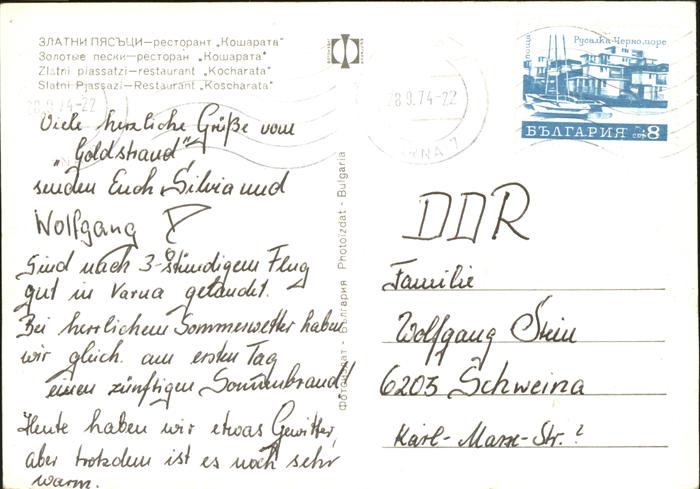 ЗЛАТНИ ПЯСЪЦИ—ресторант „Кошарата"
Золотые пески—ресторан „Кошарата"
Zlatni piassatzi—restaurant „Kocharata"
Slatni Pjassazi—Restaurant „Koscharata"
28.9.74-22
Viele herzliche Grüße vom
„Goldstrand",
senden Euch Silvia und
Wolfgang
Sind nach 3-stündigem Flug
gut in Varna gelandet.
Bei herrlichem Sommerwetter haben
wir gleich am ersten Tag
einen zünftigen Sonnenbrand!
Heute haben wir etwas Gewitter,
aber trotzdem ist es noch sehr
warm.
Фотоиздат - България Photoizdat - Bulgaria
28.9.74-22
Русалка-Черно море
поща
БЪЛГАРИЯ
8
DDR
Familie
Wolfgang Stein
6203 Schweina
Karl-Marx-Str. ?